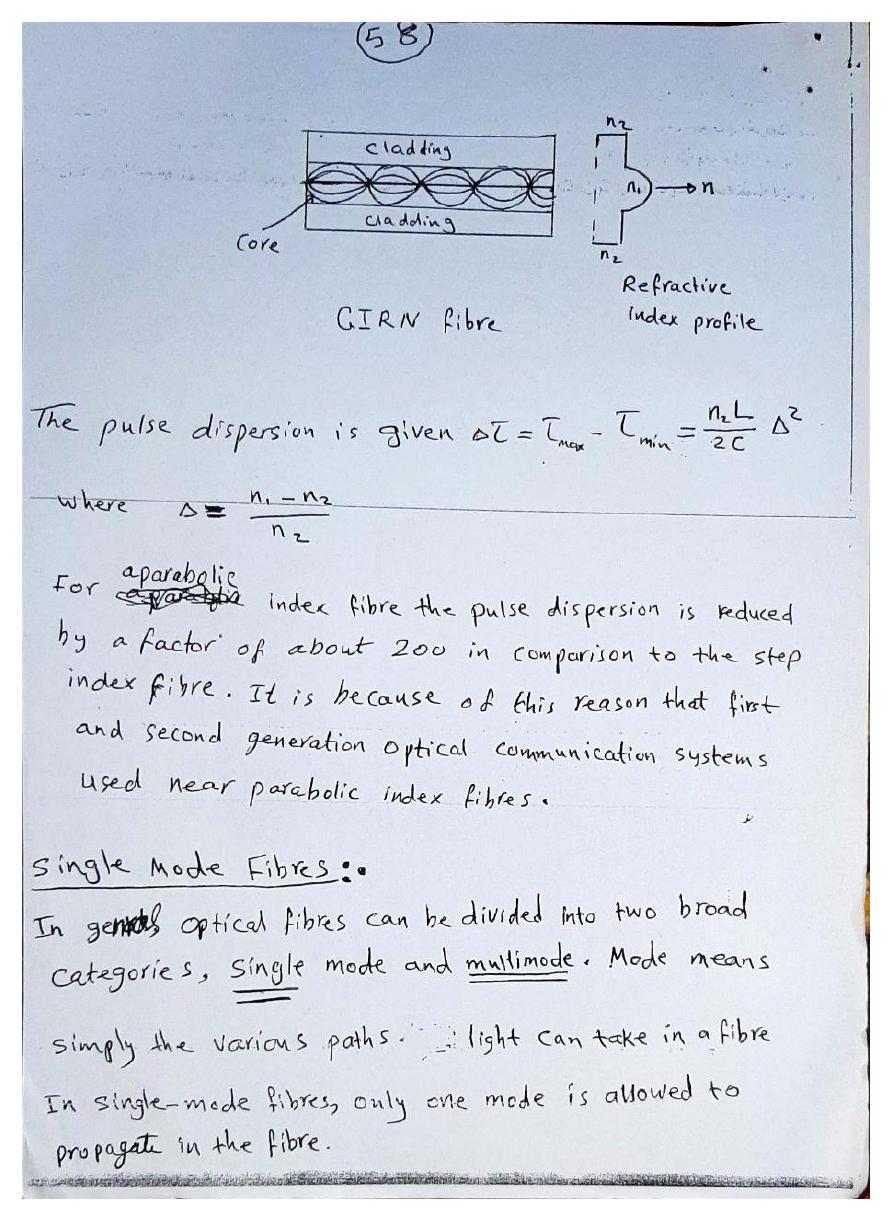 58
cladding
cladding
Core
n2
n1 → n
n2
Refractive
index profile
GIRN fibre
The pulse dispersion is given ΔT = Tmax - Tmin = n2L/2C Δ²
where Δ = n1 - n2/n2
For aparabolic index fibre the pulse dispersion is reduced
by a factor of about 200 in comparison to the step
index fibre. It is because of this reason that first
and second generation optical communication systems
used near parabolic index fibres.
Single Mode Fibres :.
In optical fibres can be divided into two broad
categories, single mode and multimode. Mode means
simply the various paths. light can take in a fibre
In single-mode fibres, only one mode is allowed to
propagate in the fibre.